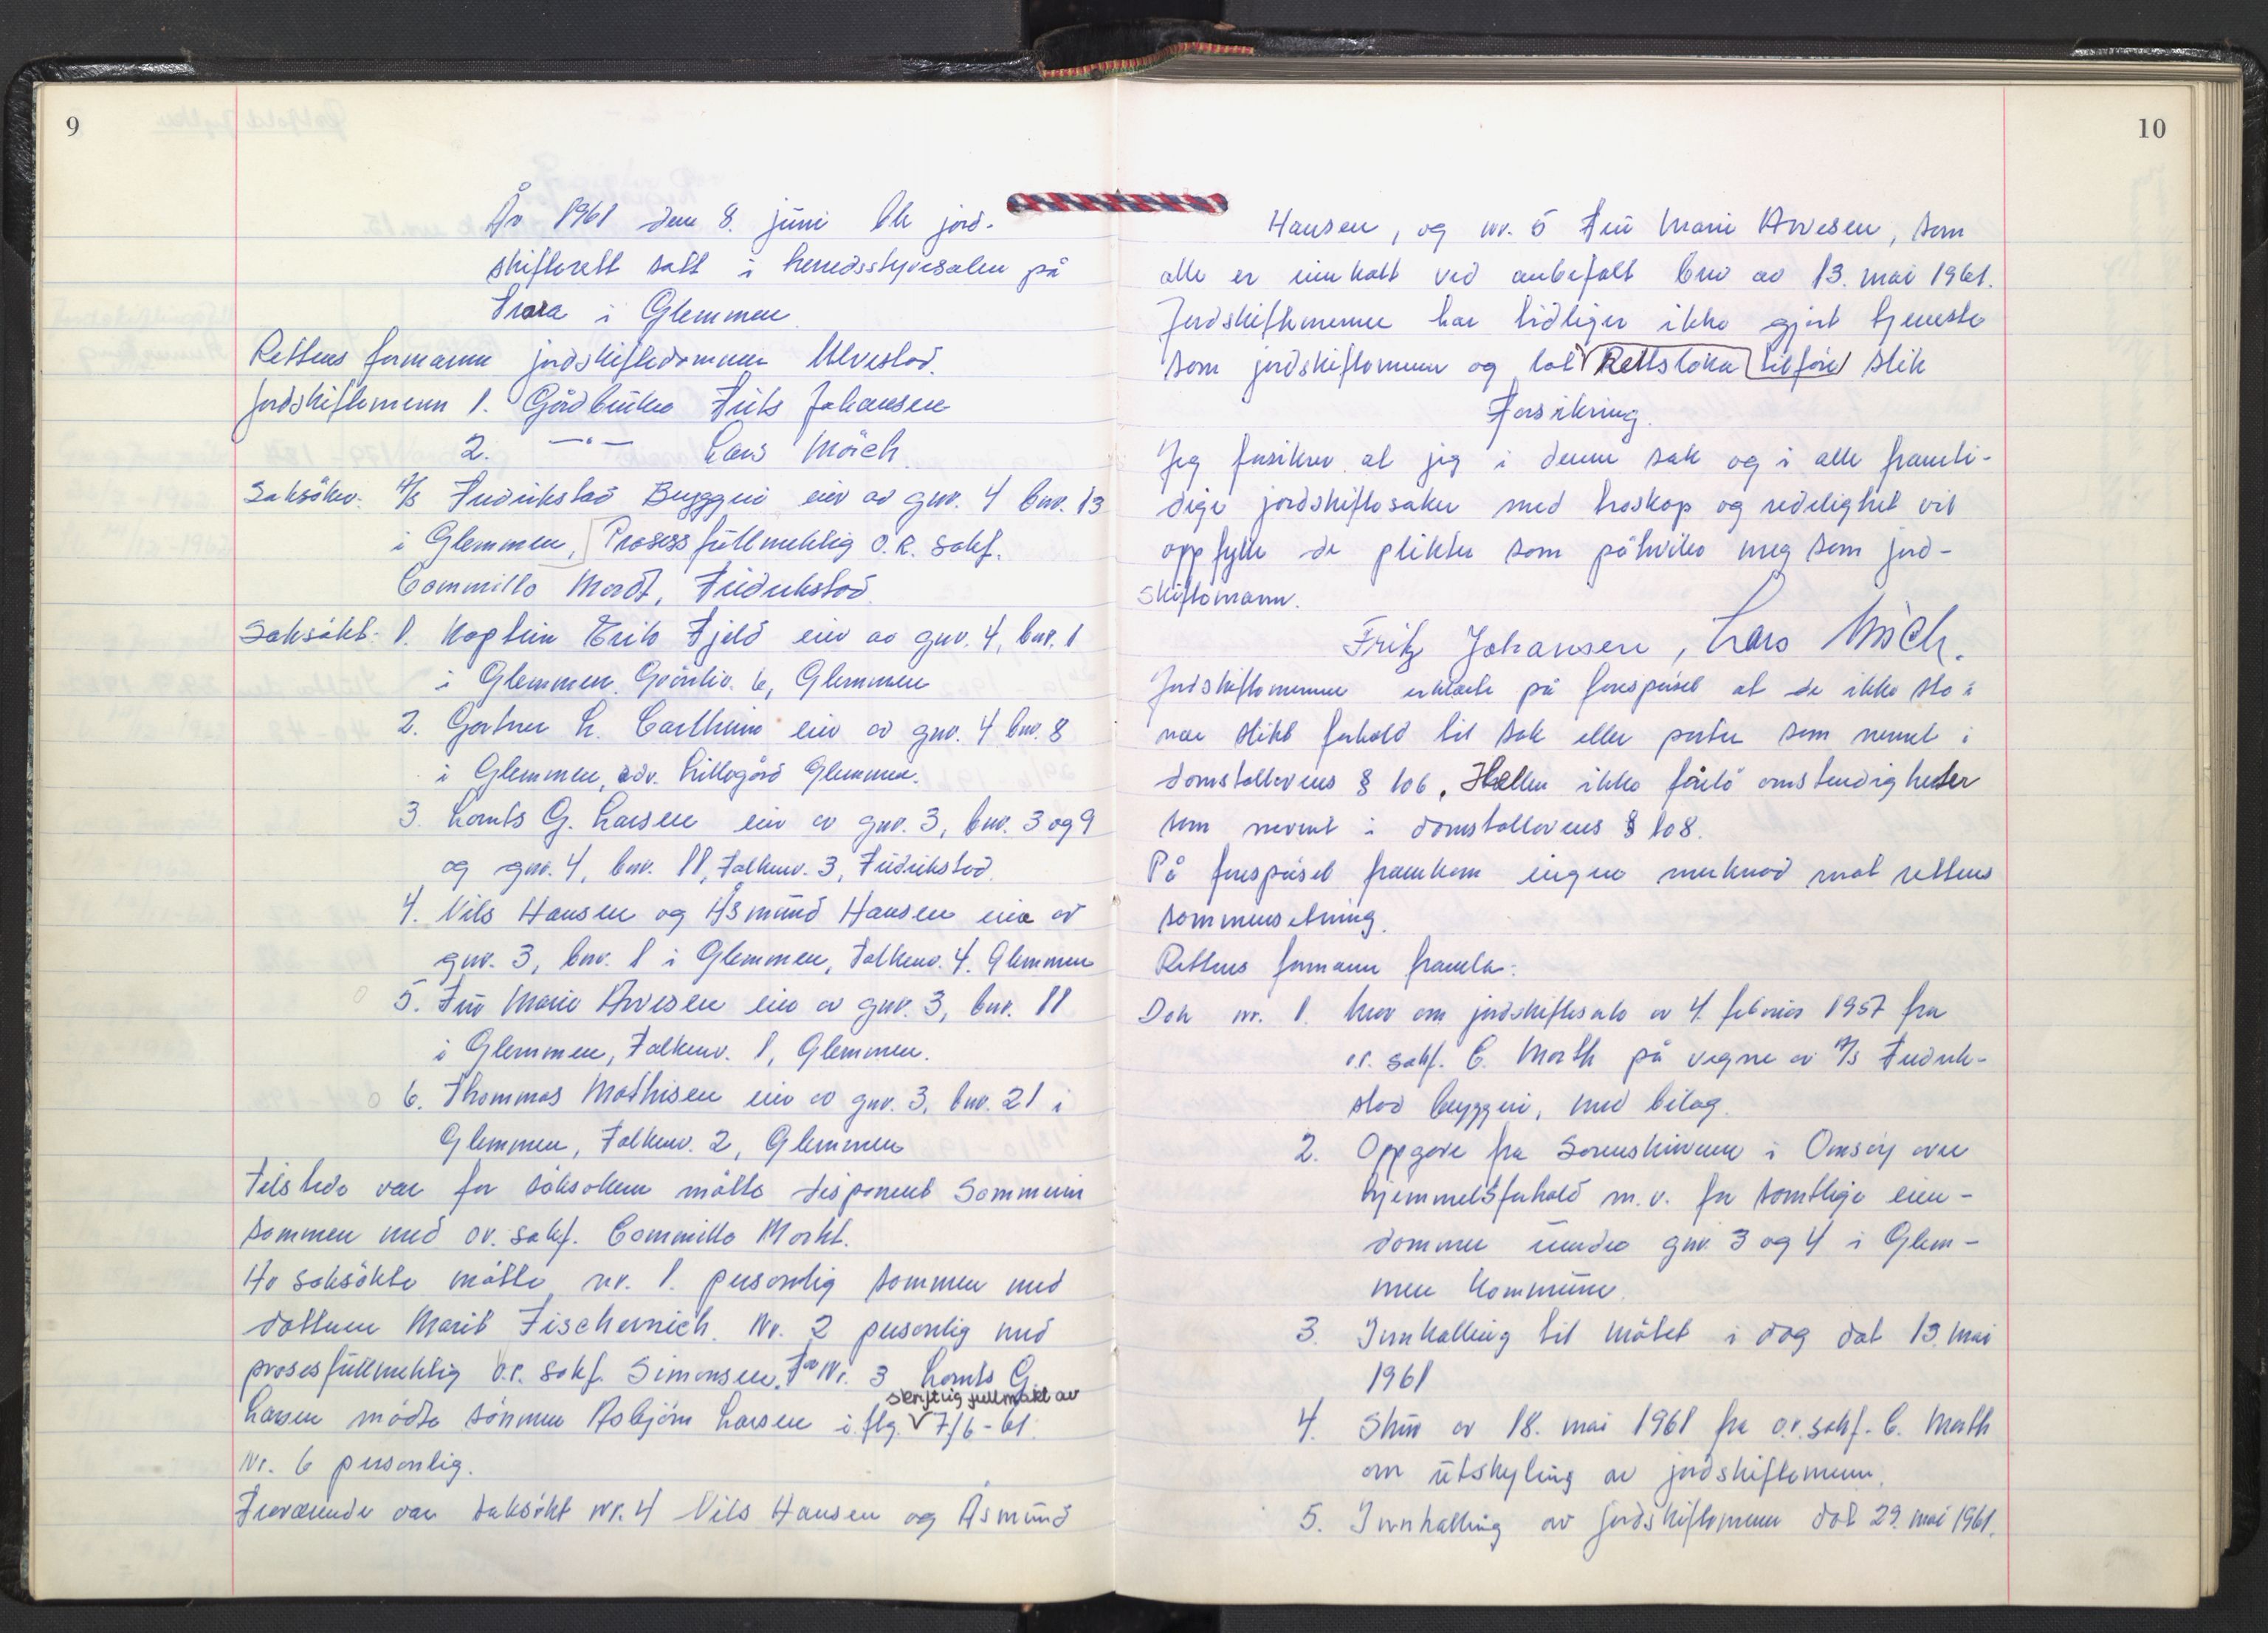 9
År 1961 den 8. juni ble jord-
skifterett satt i herredsstyresalen på
Trara i Glemmen
Rettens formann jordskiftedommer Ulvestad.
Jordskiftemenn 1. Gårdbruker Frits Johansen
2. —"— Lars Mörch
Saksöker: A/S Fredrikstad Bryggeri eier av gnr. 4 bnr. 13
i Glemmen, Prosessfullmektig O.R. sakf.
Commillo Mordt, Fredrikstad.
Saksökt: 1. Kaptein Erik Fjeld eier av gnr. 4, bnr. 1
i Glemmen. Grönliv. 6, Glemmen
2. Gartner H. Carlheim eier av gnr. 4 bnr. 8
i Glemmen, adr. Lillegård Glemmen.
3. Lorents G. Larsen eier av gnr. 3, bnr. 3 og 9
og gnr. 4, bnr. 11, Falkenv. 3, Fredrikstad.
4. Nils Hansen og Åsmund Hansen eier av
gnr. 3, bnr. 1 i Glemmen, Falkenv. 4. Glemmen
5. Fru Marie Arvesen eier av gnr. 3, bnr. 11
i Glemmen, Falkenv. 1, Glemmen.
6. Thommas Mathisen eier av gnr. 3, bnr. 21 i
Glemmen, Falkenv. 2, Glemmen
Tilstede var for saksökeren mötte disponent
sammen med o.r. sakf. Commillo Mordt.
Av saksökte mötte nr. 1. personlig sammen med
datteren Marit Fischernich. Nr. 2 personlig med
prosesfullmektig o.r. sakf. Simonsen. For Nr. 3 Lorents G.
skriftlig fullmakt av
Larsen mödte sönnen Asbjörn Larsen i flg. 7/6-61.
Nr. 6 personlig.
Fraværende var saksökt nr. 4 Nils Hansen og Åsmund
10
Hansen, og nr. 5 Fru Marie Arvesen, som
alle er innkalt ved anbefalt brev av 13. mai 1961.
Jordskiftemennene har tidligere ikke gjort tjeneste
som jordskiftemenn og lot Rettsboka tilföre slik
Forsikring.
Jeg forsikrer at jeg i denne sak og i alle framti-
dige jordskiftesaker med troskap og redelighet vil
oppfylle de plikter som påhviler meg som jord-
skiftemann.
Fritz Johansen, Lars Mörch.
Jordskiftemennene erklærte på forespörsel at de ikke sto i
noe slikt forhold til sak eller parter som nevnt i
domstollovens § 106. Heller ikke forelå omstendigheter
som nevnt i domstollovens § 108.
På forespörsel framkom ingen merknad mot rettens
sammensetning.
Rettens formann framla:
Dok nr. 1. Krav om jordskiftesak av 4. februar 1957 fra
o.r. sakf. C. Morth på vegne av A/S Fredrik-
stad bryggeri, med bilag.
2. Oppgave fra Sorenskriveren i Onsöy over
hjemmelsforhold m.v. for samtlige eien-
dommer under gnr. 3 og 4 i Glem-
men Kommune.
3. Innkalling til mötet i dag dat 13. mai
1961
4. Skriv av 18. mai 1961 fra o.r. sakf. C. Morth
om utskyting av jordskiftemenn.
5. Innkalling av jordskiftemenn dat 29. mai 1961.